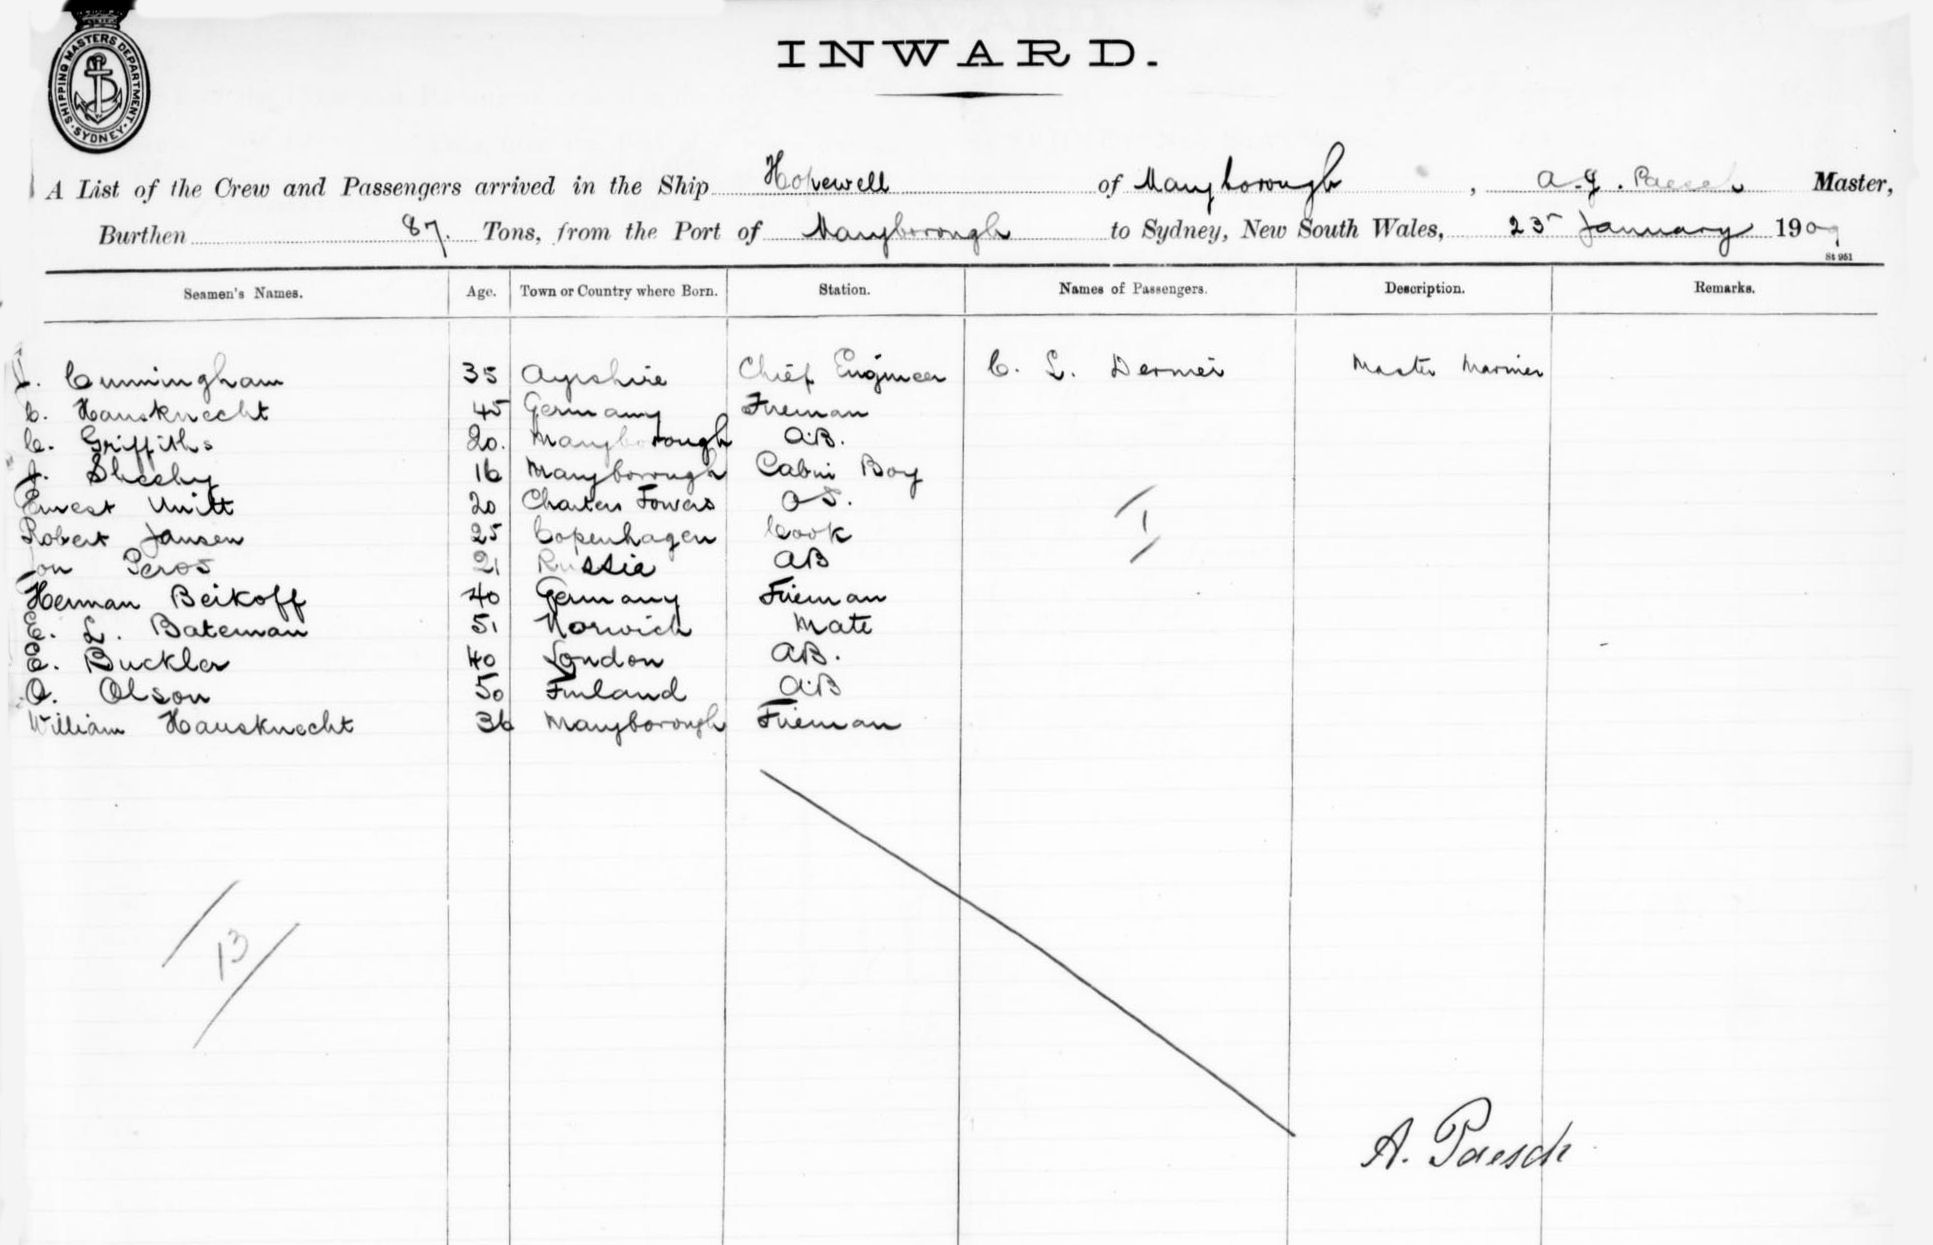 SHIPPING MASTERS DEPARTMENT. SYDNEY.
INWARD.
A List of the Crew and Passengers arrived in the Ship Hopewell of Maryborough, A. J. Paesch Master,
Burthen 87. Tons, from the Port of Maryborough to Sydney, New South Wales, 23r January 1909
St 951
Seamen's Names. Age. Town or Country where Born. Station. Names of Passengers. Description. Remarks.
Cunningham 35 Ayrshire Chief Engineer C. L. Dermer Master Mariner
C. Hausknecht 45 Germany Fireman
C. Griffiths 20. Maryborough A.B.
J. Sheehy 16 Maryborough Cabin Boy
Ernest Unitt 20 Charters Towers O S.
1
Robert Jansen 25 Copenhagen Cook
Jon Peros 21 Russia AB
Herman Beikoff 40 Germany Fireman
E. L. Bateman 51 Norwich Mate
E. Buckler 40 London AB.
O. Olson 50 Finland A.B
William Hausknecht 36 Maryborough Fireman
13
A. Paesch